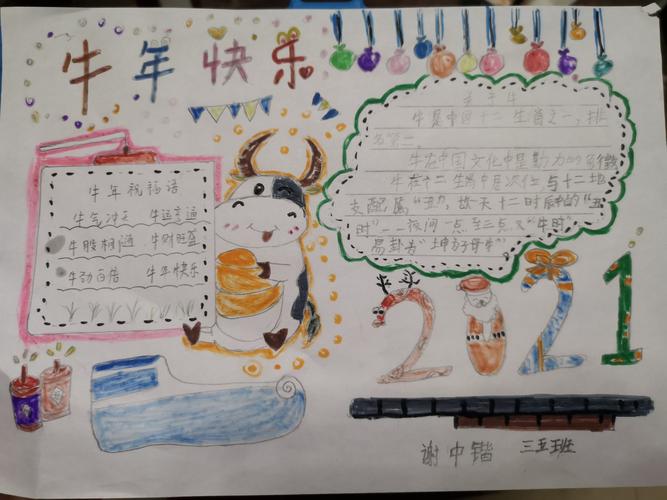 牛年快乐
关于牛
牛是中国十二生肖之一,排
名第二。
牛在中国文化中是勤力的象徵
牛在十二生肖中居次位,与十二地
支配属"丑",故一天十二时辰的"丑
时"--夜间一点至三点又"牛时"
易卦为"坤为子母牛"
牛年祝福语
牛气冲天 牛运亨通
牛股相通 牛财旺盛
牛劲百倍 牛年快乐
2021
谢中锴 三五班